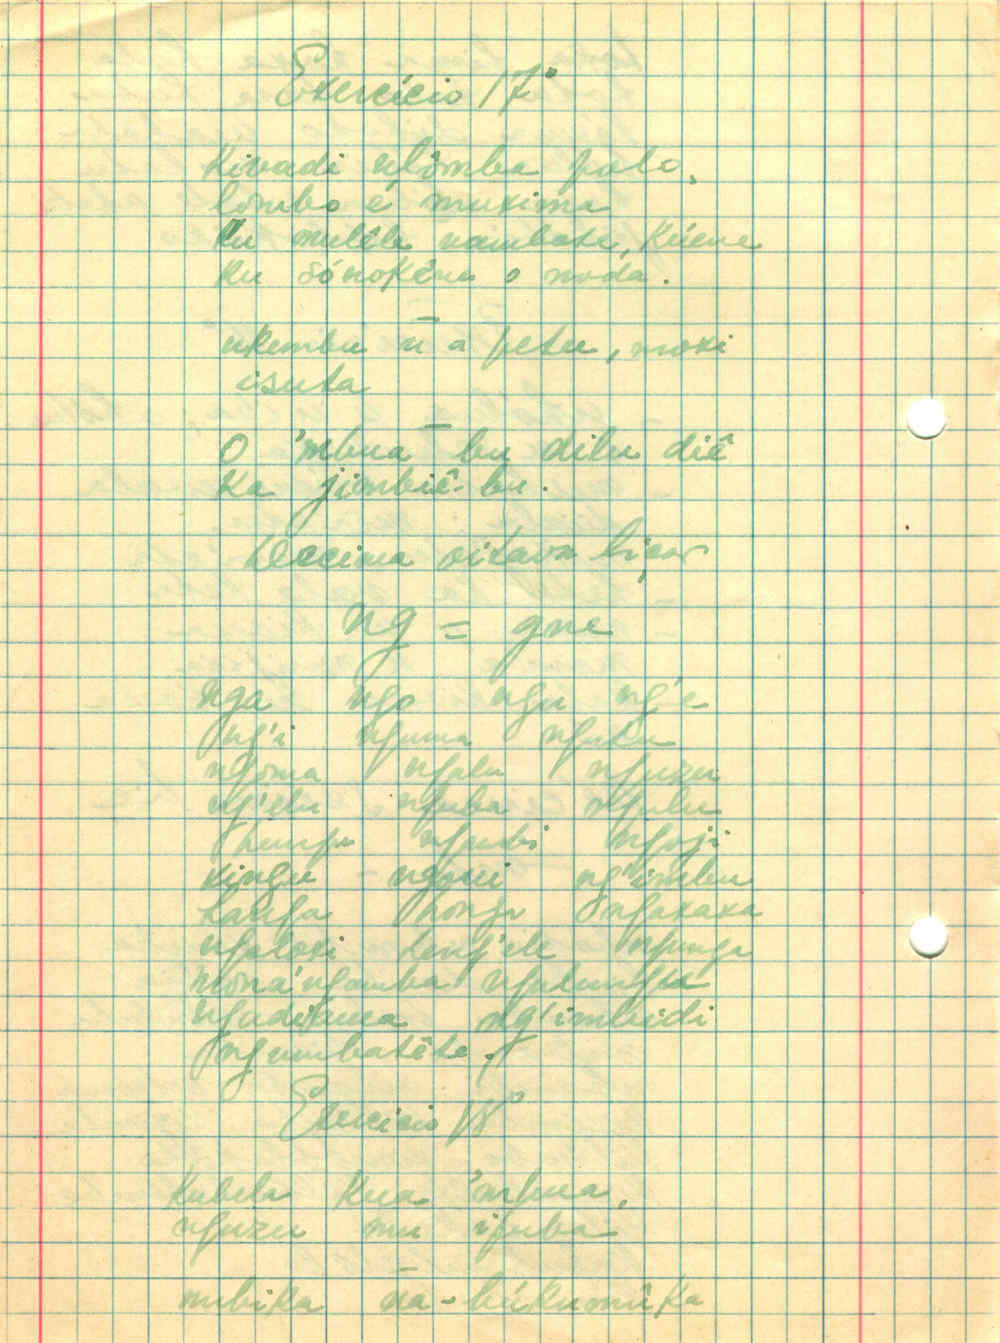 Exercício 17º
Kivadi ulômba polo,
lombo é muxima
Ku mulêle uambote, kúene
Ku sónokénu o noda.
ukembu ū a petu, moxi
isuta
O 'mbuā bu dilu diê
Ka jimbiê-bu.
Deccima oitava liçao
ng = gne
nga ngo ngu ng'e
ng'i nguma nguku
ngoma ngalu nguzu
ng'elu nguba ngulu
ngumbi ngoji
xingu ngoxi ng'imbu
Lauga honga ngaxaxa
ngaloxi deng'ele ngunga
mona'ngamba
ng'imbidi
ngumbatête.
Exercicio 18º
Kubela kua 'mbua,
nguzu mu ifuba
mubika ūa-búkumûka